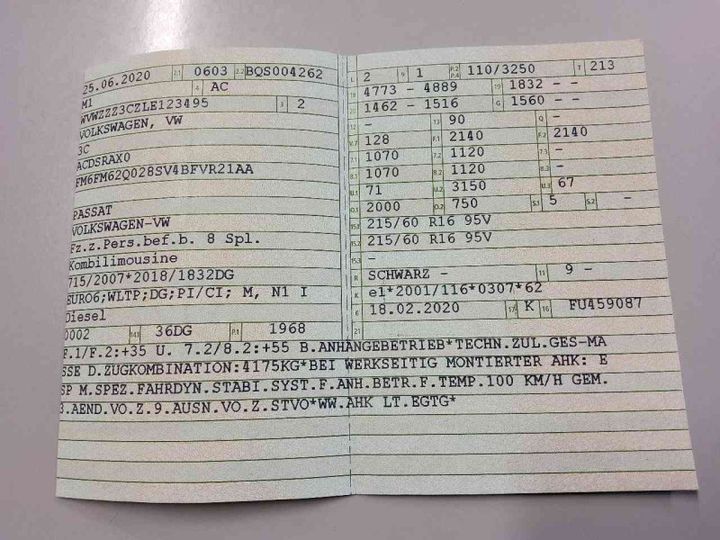 25.06.2020 2.1 0603 2.2 BQS004262
M1 4 AC
WVWZZZ3CZLE123495 3 2
VOLKSWAGEN, VW
3C
ACDSRAX0
FM6FM62Q028SV4BFVR21AA
PASSAT
VOLKSWAGEN-VW
Fz.z.Pers.bef.b. 8 Spl.
Kombilimousine
715/2007*2018/1832DG
EURO6;WLTP;DG;PI/CI; M, N1 I
Diesel
0002 14.1 36DG P.1 1968
L 2 9 1 P.2 P.4 110/3250 T 213
18 4773 - 4889 19 1832 - -
20 1462 - 1516 G 1560 - -
12 - 13 90 Q -
V.7 128 F.1 2140 F.2 2140
7.1 1070 7.2 1120 7.3 -
8.1 1070 8.2 1120 8.3 -
U.1 71 U.2 3150 U.3 67
O.1 2000 O.2 750 S.1 5 S.2 -
15.1 215/60 R16 95V
15.2 215/60 R16 95V
15.3 -
R SCHWARZ - 11 9 -
K e1*2001/116*0307*62
6 18.02.2020 17 K 16 FU459087
21
F.1/F.2:+35 U. 7.2/8.2:+55 B.ANHANGEBETRIEB*TECHN.ZUL.GES-MA
SSE D.ZUGKOMBINATION:4175KG*BEI WERKSEITIG MONTIERTER AHK: E
SP M.SPEZ.FAHRDYN.STABI.SYST.F.ANH.BETR.F.TEMP.100 KM/H GEM.
3.AEND.VO.Z.9.AUSN.VO.Z.STVO*WW.AHK LT.EGTG*